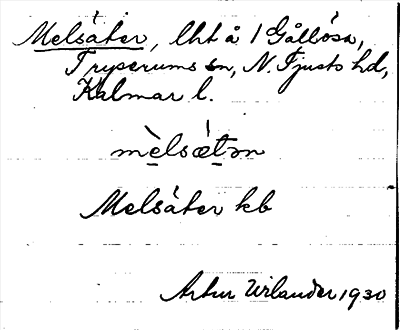 Melsåter, lht å 1 Gållösa,
Tryserums sn, N. Tjusts hd,
Kalmar l.
mèlsætən
Melsåter kb
Artur Wilander 1930